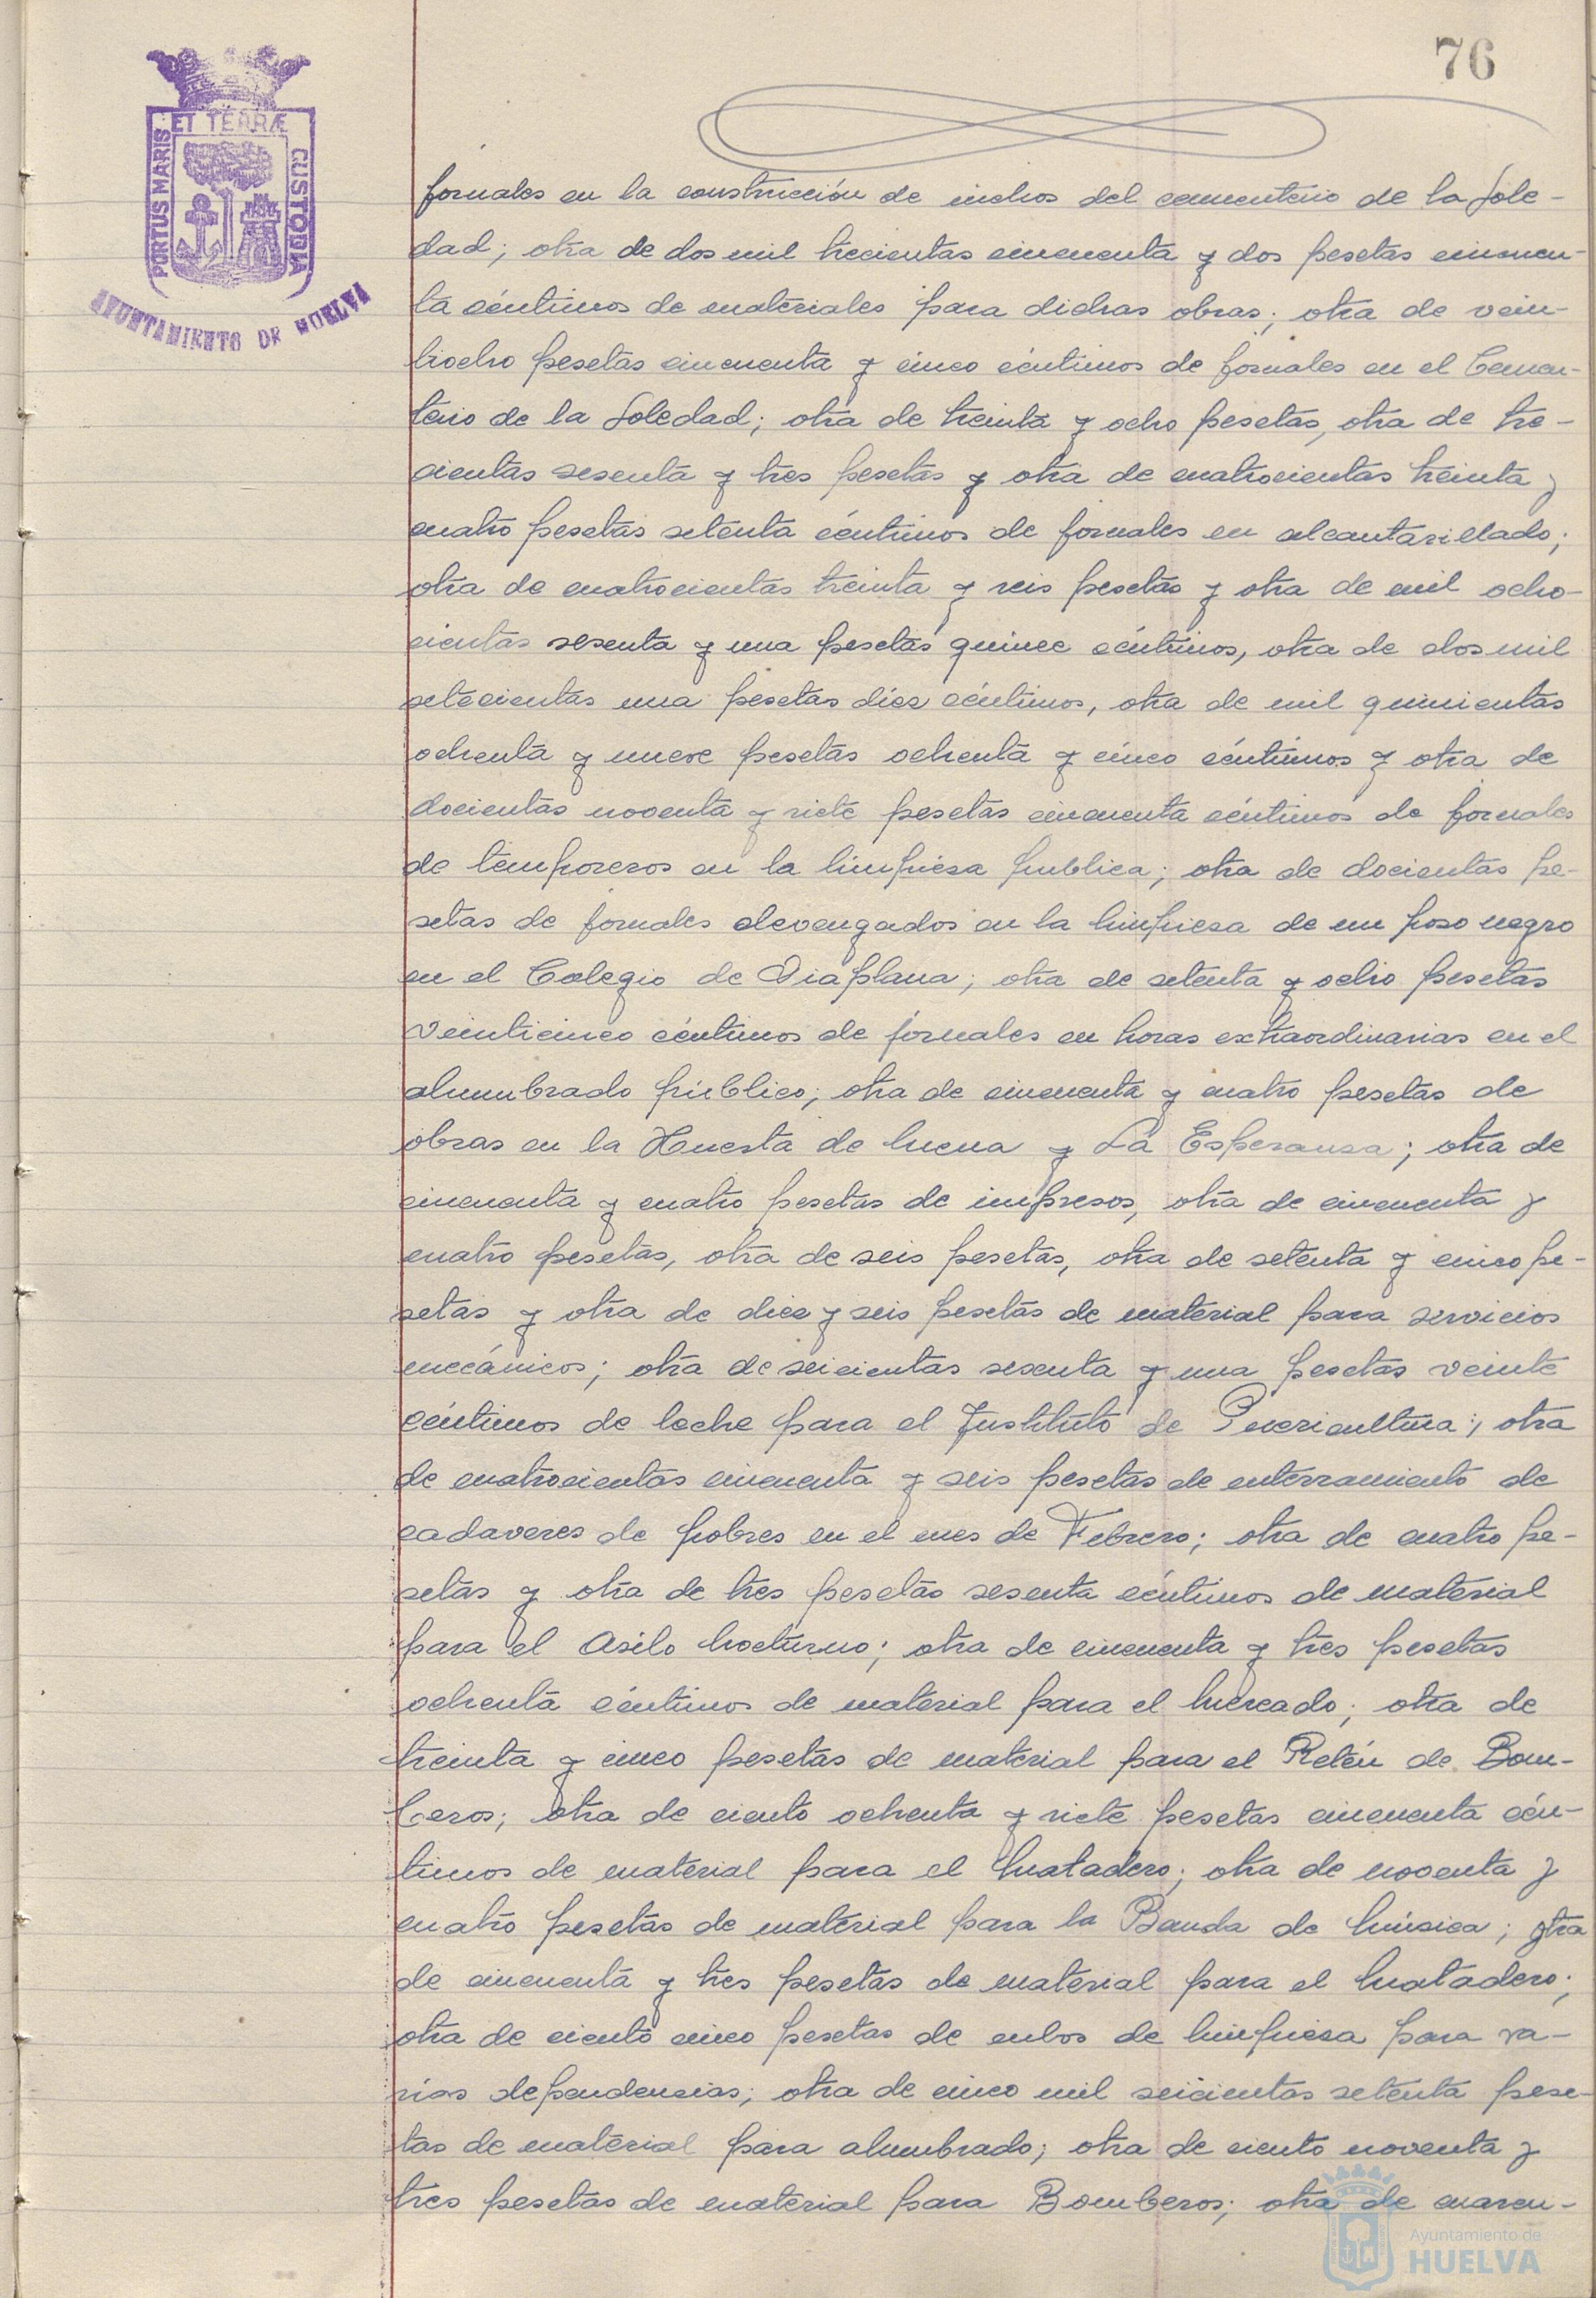 76
PORTUS MARIS ET TERRÆ CUSTODIA
AYUNTAMIENTO DE HUELVA
jornales en la construcción de nichos del cementerio de la Sole-
dad; otra de dos mil trecientas cincuenta y dos pesetas cincuen-
ta céntimos de materiales para dichas obras; otra de vein-
tiocho pesetas cincuenta y cinco céntimos de jornales en el Cemen-
terio de la Soledad; otra de treinta y ocho pesetas, otra de tre-
cientas sesenta y tres pesetas y otra de cuatrocientas treinta y
cuatro pesetas setenta céntimos de jornales en alcantarillado;
otra de cuatrocientas treinta y seis pesetas y otra de mil ocho-
cientas sesenta y una pesetas quince céntimos, otra de dos mil
setecientas una pesetas diez céntimos, otra de mil quinientas
ochenta y nueve pesetas ochenta y cinco céntimos y otra de
docientas noventa y siete pesetas cincuenta céntimos de jornales
de temporeros en la limpieza publica; otra de docientas pe-
setas de jornales devengados en la limpieza de un poso negro
en el Colegio de Viaplana; otra de setenta y ocho pesetas
veinticinco céntimos de jornales en horas extraordinarias en el
alumbrado público; otra de cincuenta y cuatro pesetas de
obras en la Huerta de Mena y La Esperanza; otra de
cincuenta y cuatro pesetas de impresos, otra de cincuenta y
cuatro pesetas, otra de seis pesetas, otra de setenta y cinco pe-
setas y otra de diez y seis pesetas de material para servicios
mecánicos; otra de seicientas sesenta y una pesetas veinte
céntimos de leche para el Instituto de Puericultura; otra
de cuatrocientas cincuenta y seis pesetas de enterramiento de
cadaveres de pobres en el mes de Febrero; otra de cuatro pe-
setas y otra de tres pesetas sesenta céntimos de material
para el Asilo Nocturno; otra de cincuenta y tres pesetas
ochenta céntimos de material para el Mercado; otra de
treinta y cinco pesetas de material para el Retén de Bom-
beros; otra de ciento ochenta y siete pesetas cincuenta cén-
timos de material para el Matadero; otra de noventa y
cuatro pesetas de material para la Banda de Música; otra
de cincuenta y tres pesetas de material para el Matadero;
otra de ciento cinco pesetas de cubos de limpieza para va-
rias dependencias; otra de cinco mil seicientas setenta pese-
tas de material para alumbrado; otra de ciento noventa y
tres pesetas de material para Bomberos; otra de cuaren-
Ayuntamiento de
HUELVA